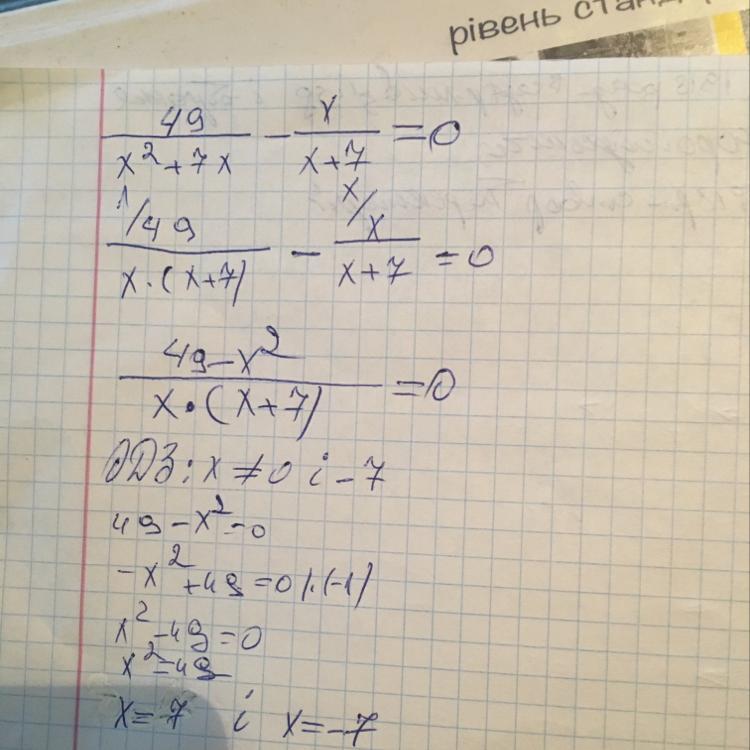 рівень стандар
49/(x² + 7x) - x/(x+7) = 0
1/49/(x·(x+7)) - x/x/(x+7) = 0
(49-x²)/(x·(x+7)) = 0
ОДЗ: x ≠ 0 і -7
49 - x² = 0
-x² + 49 = 0 |·(-1)
x² - 49 = 0
x² = 49
x = 7 і x = -7